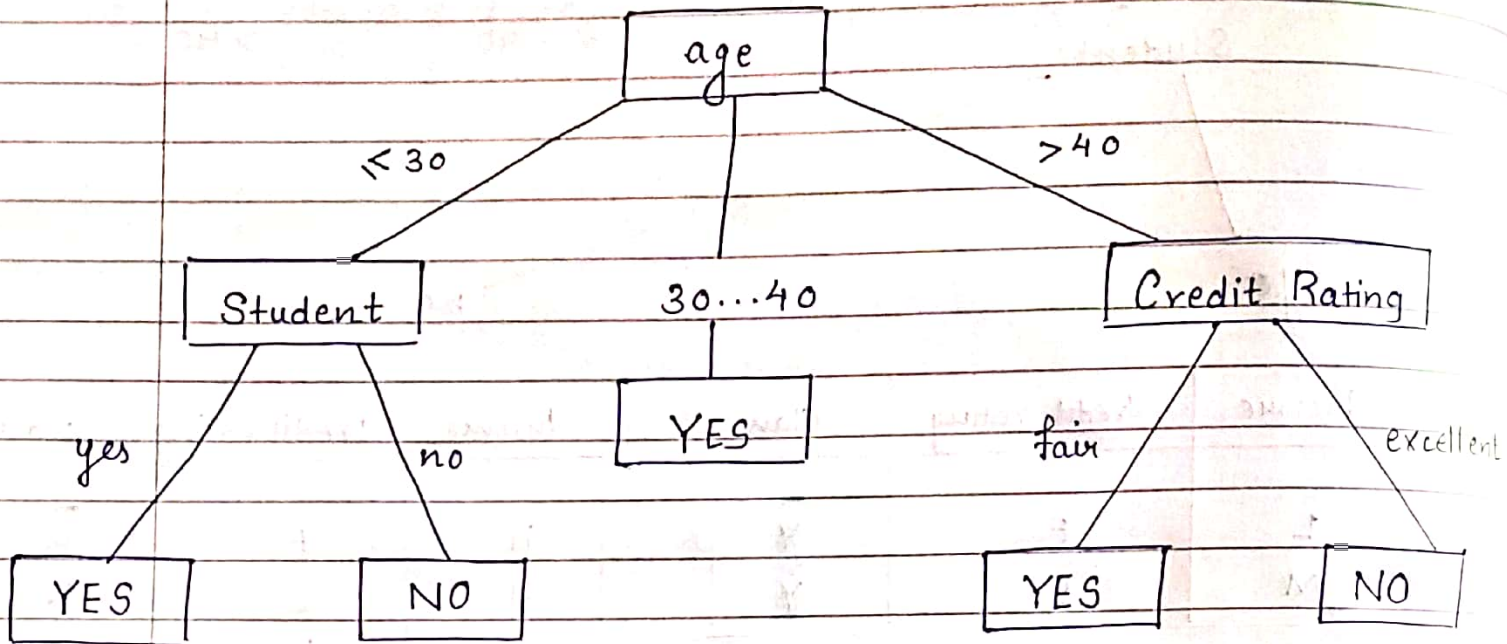 age
≤ 30
> 40
Student
30...40
Credit Rating
YES
yes
no
fair
excellent
YES
NO
YES
NO